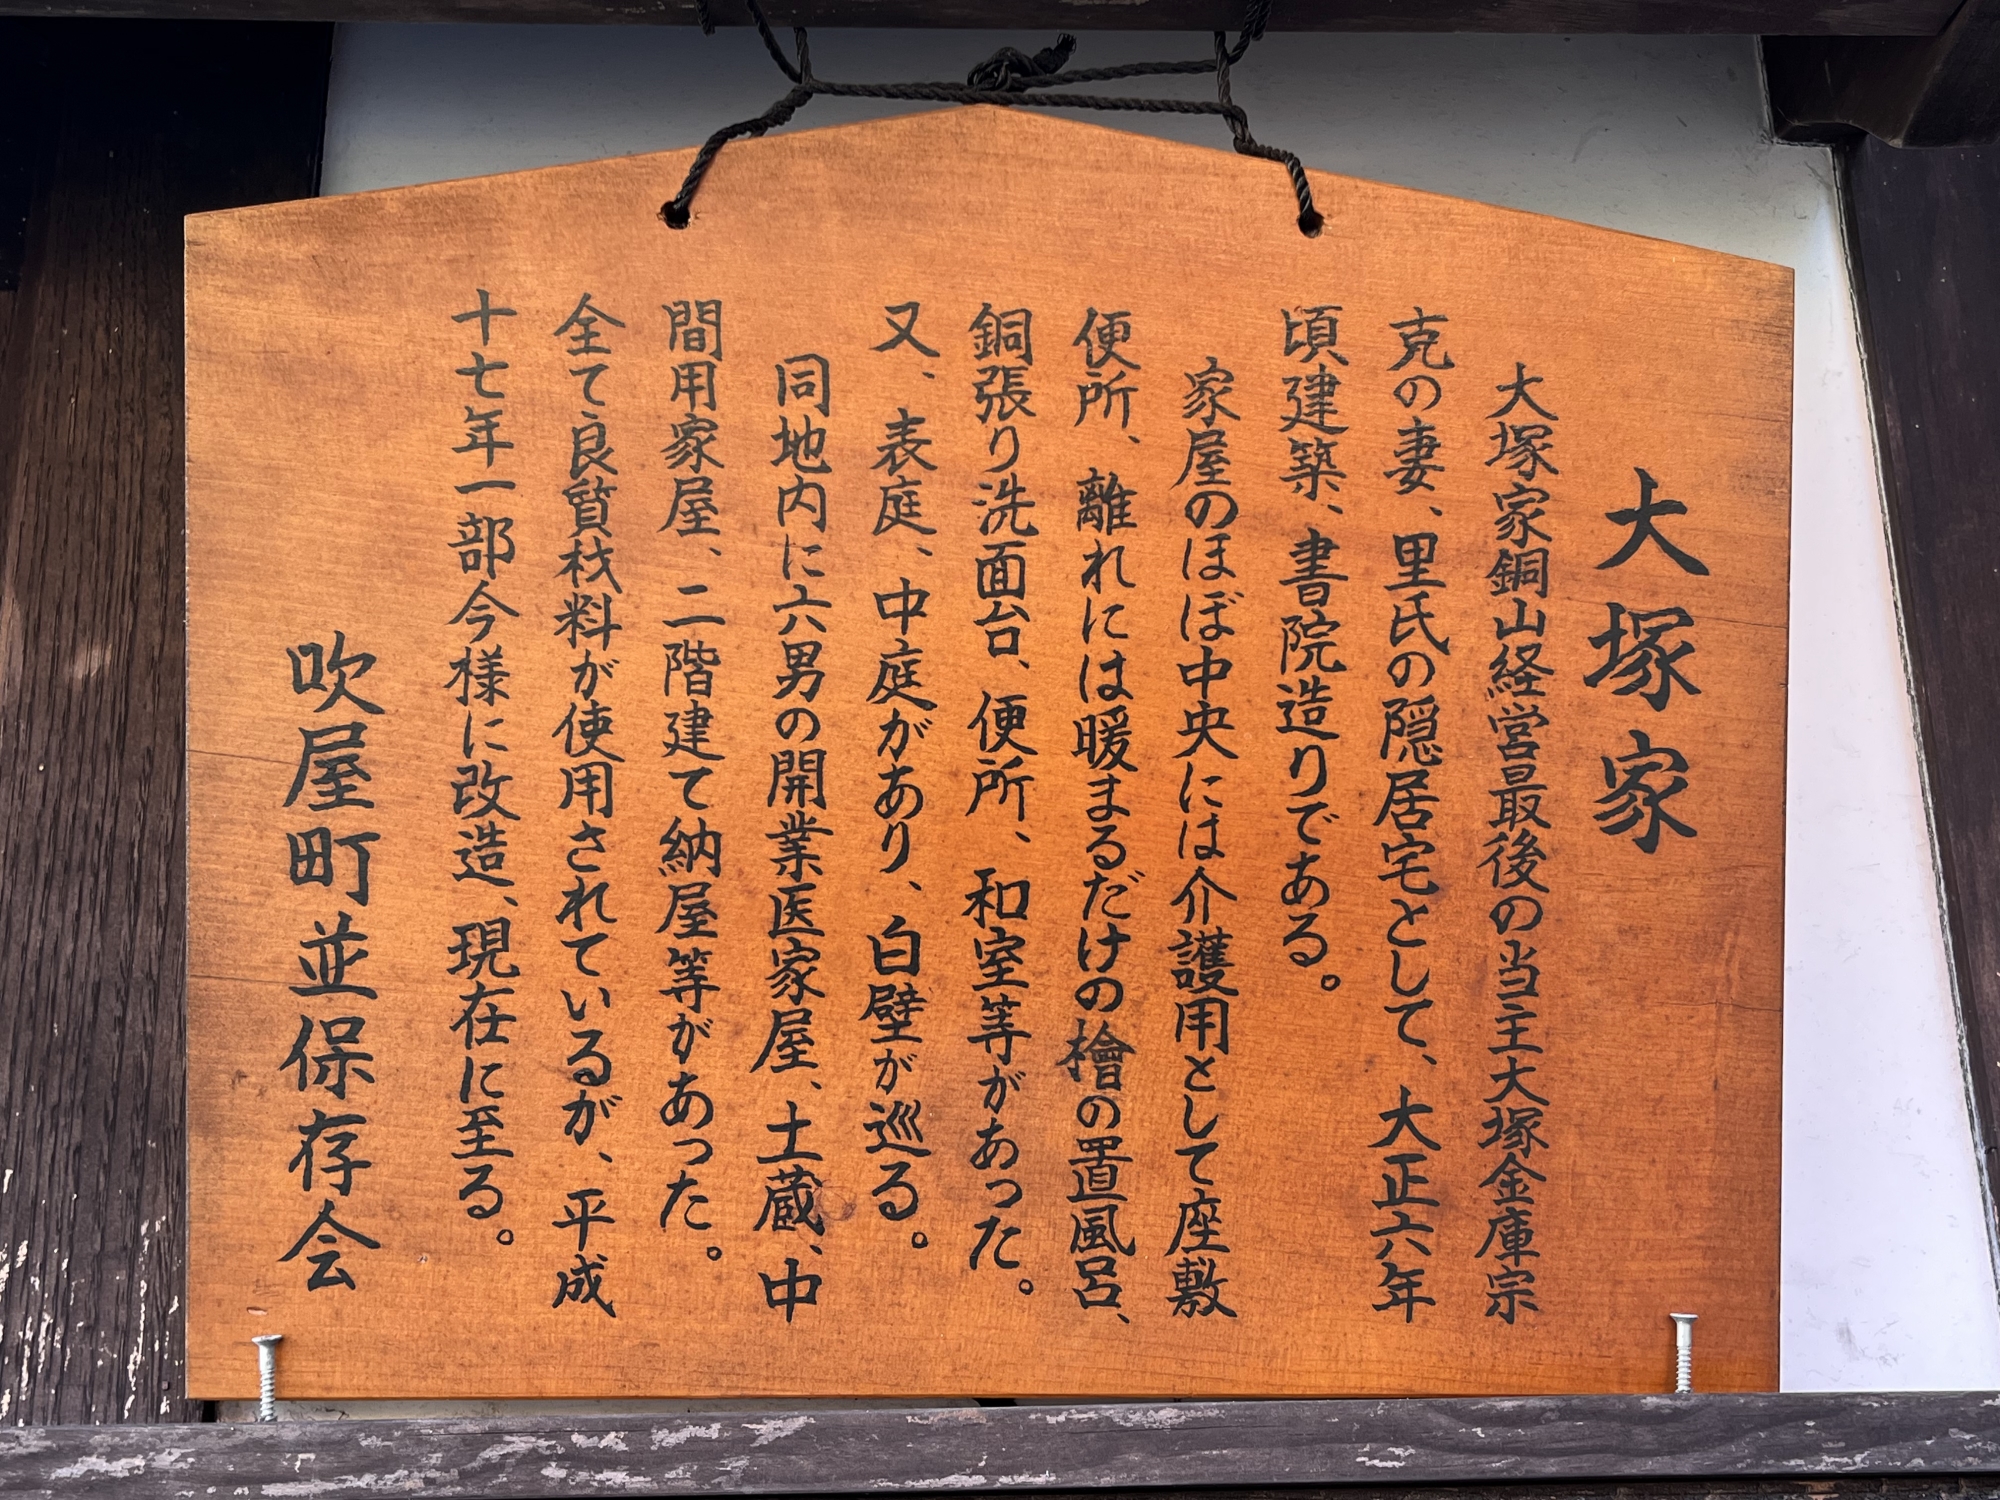 大塚家
大塚家銅山経営最後の当主大塚金庫宗
克の妻、里氏の隠居宅として、大正六年
頃建築、書院造りである。
家屋のほぼ中央には介護用として座敷
便所、離れには暖まるだけの檜の置風呂、
銅張り洗面台、便所、和室等があった。
又、表庭、中庭があり、白壁が巡る。
同地内に六男の開業医家屋、土蔵、中
間用家屋、二階建て納屋等があった。
全て良質材料が使用されているが、平成
十七年一部今様に改造、現在に至る。
吹屋町並保存会